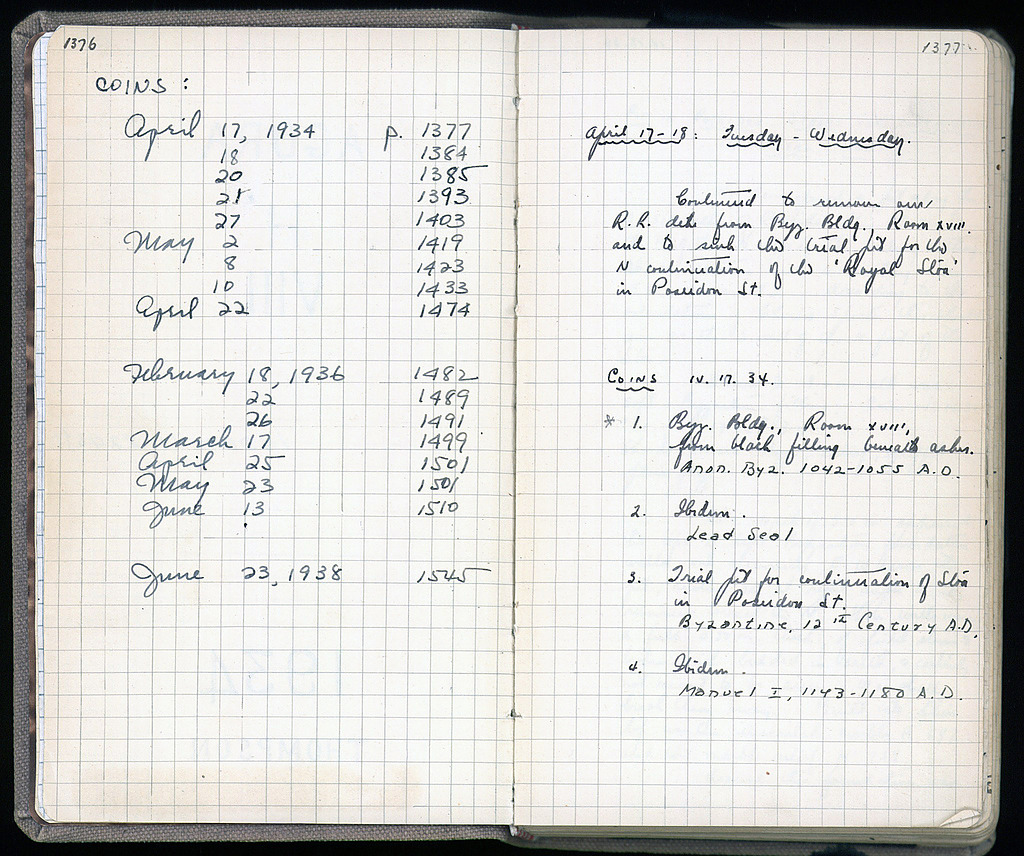 1376
COINS :
April 17, 1934 p. 1377
18 1384
20 1385
21 1393
27 1403
May 2 1419
8 1423
10 1433
April 22 1474
February 18, 1936 1482
22 1489
26 1491
March 17 1499
April 25 1501
May 23 1501
June 13 1510
June 23, 1938 1545
1377
April 17-18: Tuesday - Wednesday.
Continued to remove our
R.R. dete from Byz. Bldg., Room XVIII.
and to sink the trial pit for the
N continuation of the 'Royal Stoa'
in Poseidon St.
COINS IV. 17. 34.
* 1. Byz. Bldg., Room XVIII,
from black filling beneath ashes.
Anon. Byz. 1042-1055 A.D.
2. Ibidem.
Lead Seal
3. Trial pit for continuation of Stoa
in Poseidon St.
Byzantine, 12th Century A.D.
4. Ibidem.
Manuel I, 1143-1180 A.D.